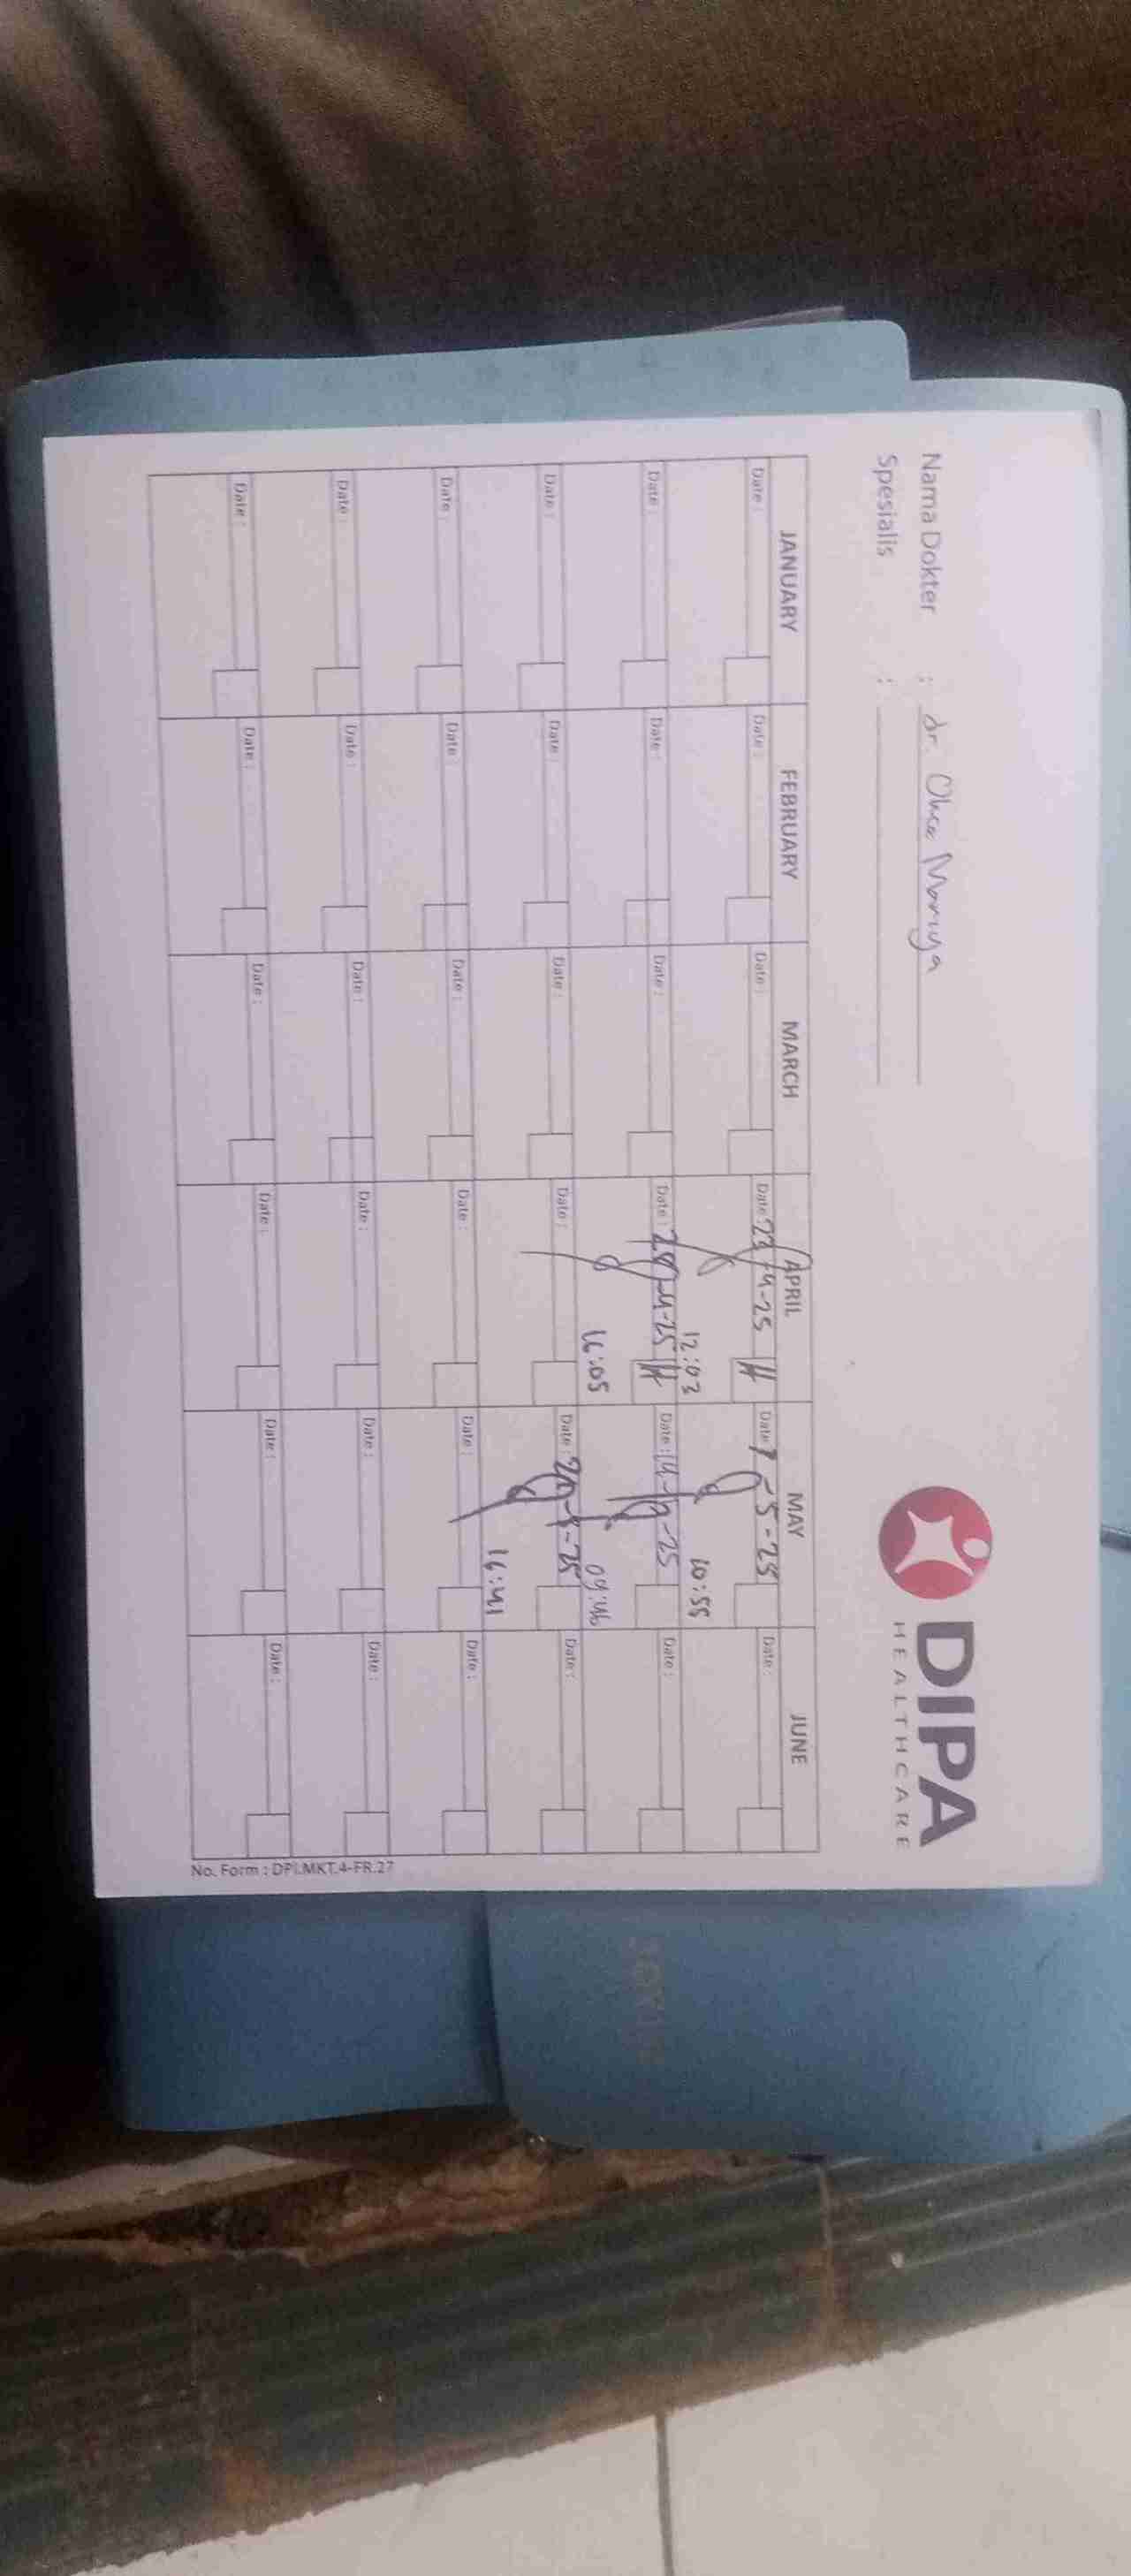 Nama Dokter : dr. Olwa Mariya
Spesialis :
DIPA
HEALTHCARE
JANUARY FEBRUARY MARCH APRIL MAY JUNE
Date : Date : Date : Date : 23-4-25 Date : 7-5-25 Date :
12:03 10:55
Date : Date : Date : Date : 28-4-25 Date : Date :
16:05 09:46
Date : Date : Date : Date : Date : Date :
16:41
Date : Date : Date : Date : Date : Date :
Date : Date : Date : Date : Date : Date :
Date : Date : Date : Date : Date : Date :
No. Form : DPI.MKT.4-FR.27